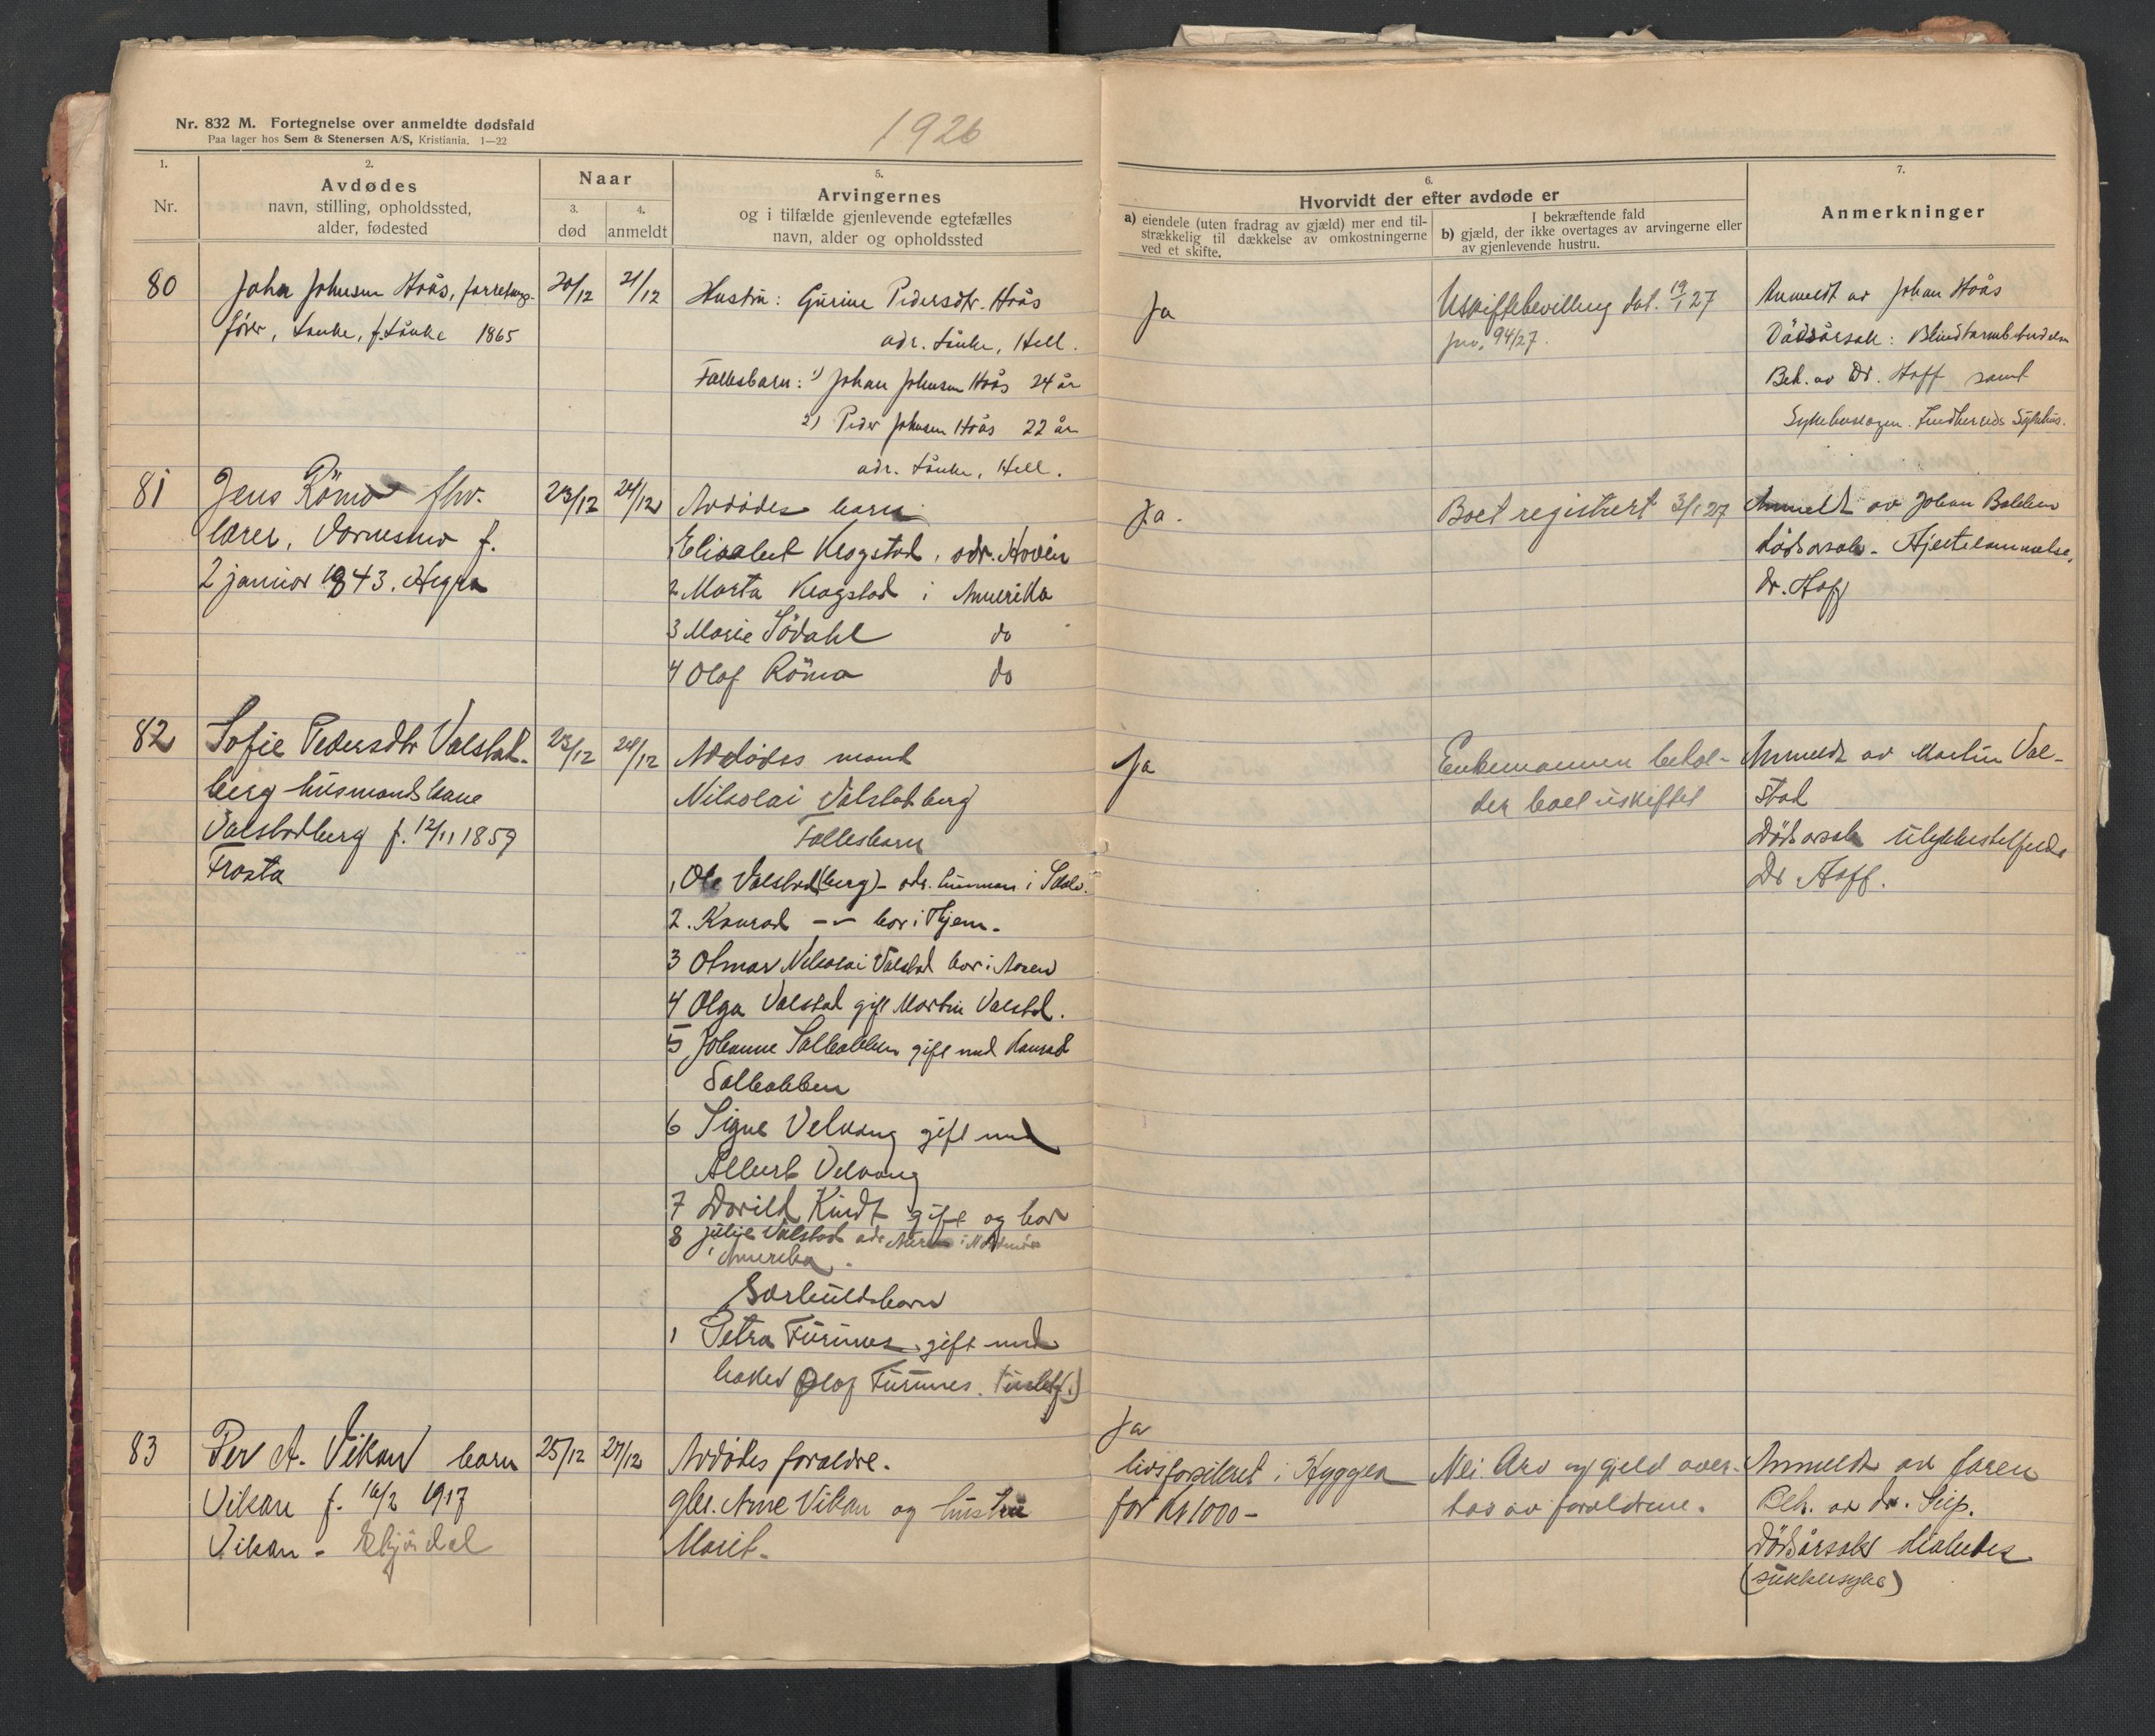 Nr. 832 M. Fortegnelse over anmeldte dødsfald
Paa lager hos Sem & Stenersen A/S, Kristiania. 1—22
1926
1.
Nr.
2.
Avdødes
navn, stilling, opholdssted,
alder, fødested
Naar
3.
død
4.
anmeldt
5.
Arvingernes
og i tilfælde gjenlevende egtefælles
navn, alder og opholdssted
6.
Hvorvidt der efter avdøde er
a) eiendele (uten fradrag av gjæld) mer end til-
strækkelig til dækkelse av omkostningerne
ved et skifte.
I bekræftende fald
b) gjæld, der ikke overtages av arvingerne eller
av gjenlevende hustru.
7.
Anmerkninger
80
John Johnsen Hoås, forretnings-
fører, Lånke, f. Lånke 1865
20/12
21/12
Hustru: Gurine Pedersdtr. Hoås
adr. Lånke, Hell.
Fællesbarn: 1) Johan Johnsen Hoås 24 år
2) Peder Johnsen Hoås 22 år
adr. Lånke, Hell.
Ja
Uskiftebevilling dat. 19/1 27
jnr. 94/27.
Anmeldt av Johan Hoås
Dødsårsak: Blindtarmbetendelse
Beh. av Dr. Hoff samt
Sykehuslægen Sykehus.
81
Jens Römo fhv.
lærer, Værnesmo f.
2 januar 1843. Hegra
23/12
24/12
Avdødes barn
1 Elisabet Krogstad, adr. Hoven
2 Marta Krogstad i Amerika
3 Marie Södahl do
4 Olaf Römo do
Ja.
Boet registrert 3/1 27
Anmeldt av Johan
Dödsorsak - Hjertelammelse.
Dr. Hoff
82
Sofie Pedersdtr Valstad-
berg husmandskone
Valstadberg f. 12/11 1859
Frosta
23/12
24/12
Avdödes mand
Nikolai Valstadberg
Fællesbarn
1, Ole Valstad(berg) - adr.
2. Konrad - - bor i Hjem.
3 Otmar Nikolai Valstad bor i Åsen
4 Olga Valstad gift Martin Valstad.
5 Johanne Salbobben gift med Konrad
Salbobben
6 Signe Velvang gift med
Albert Velvang
7 Dorild Kindt gift og bor
8 Julie Valstad adr
i Amerika.
Særkuldsbarn
1 Petra Furunes, gift med
baker Olaf Furunes.
Ja
Enkemannen behol-
der boet uskiftet
Anmeldt av Martin Val-
stad
Dödsorsak ulykkestilfelde
Dr Hoff.
83
Per A. Vikan barn
Vikan f. 16/2 1917
Vikan - Skjördal
25/12
27/12
Avdødes foraldre.
gbr. Arne Vikan og hustru
Marit.
Ja
livsforsikret i Hygea
for kr 1000 -
Nei. Arv og gjeld over-
tas av foraldrene.
Anmeldt av faren
Beh. av dr. Siep.
Dödsårsak diabetes
(sukkersyke)